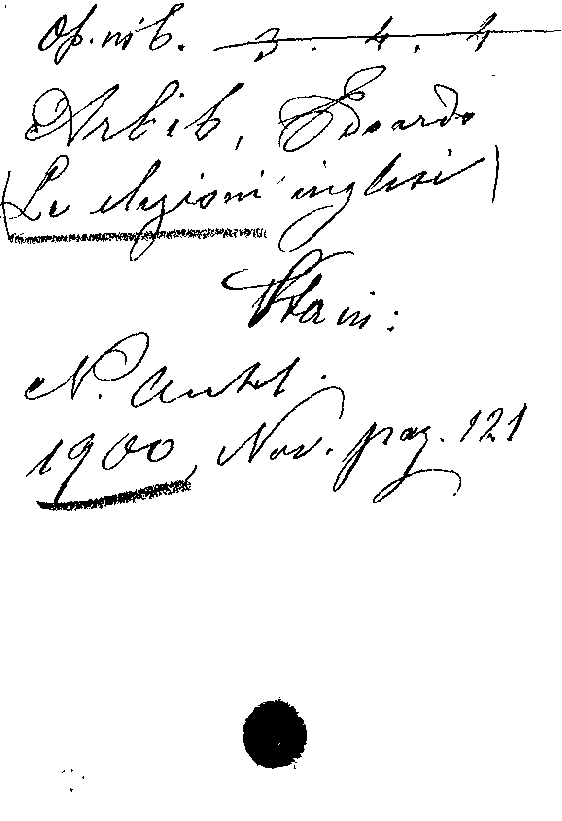 Op. nib. 3. 4. 4
Arbib, Edoardo
(Le elezioni inglesi)
Sta in:
N. Antol.
1900, Nov. pag. 121